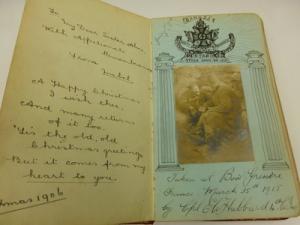 To My Dear Sister
With Affectionate
Remembrances
From Isabel
A Happy Christmas
I wish thee,
And many returns
of it too.
'Tis the old, old
Christmas greeting
But it comes from my
heart to you.
Xmas 1906
Taken at
France March 15th 1915
by Cpl Hubbard